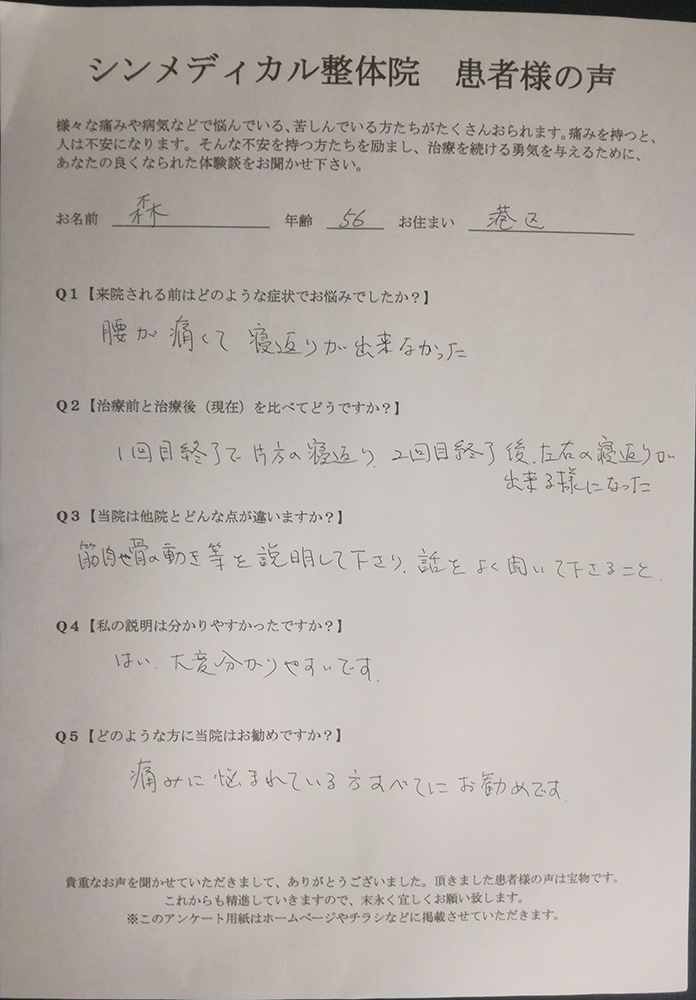 シンメディカル整体院 患者様の声
様々な痛みや病気などで悩んでいる、苦しんでいる方たちがたくさんおられます。痛みを持つと、
人は不安になります。そんな不安を持つ方たちを励まし、治療を続ける勇気を与えるために、
あなたの良くなられた体験談をお聞かせ下さい。
お名前 森 年齢 56 お住まい 港区
Q1【来院される前はどのような症状でお悩みでしたか?】
腰が痛くて 寝返りが出来なかった
Q2【治療前と治療後(現在)を比べてどうですか?】
1回目終了で片方の寝返り、2回目終了後、左右の寝返りが
出来る様になった
Q3【当院は他院とどんな点が違いますか?】
筋肉や骨の動き等を説明して下さり、話をよく聞いて下さること.
Q4【私の説明は分かりやすかったですか?】
はい、大変分かりやすいです.
Q5【どのような方に当院はお勧めですか?】
痛みに悩まれている方すべてにお勧めです.
貴重なお声を聞かせていただきまして、ありがとうございました。頂きました患者様の声は宝物です。
これからも精進していきますので、末永く宜しくお願い致します。
※このアンケート用紙はホームページやチラシなどに掲載させていただきます。